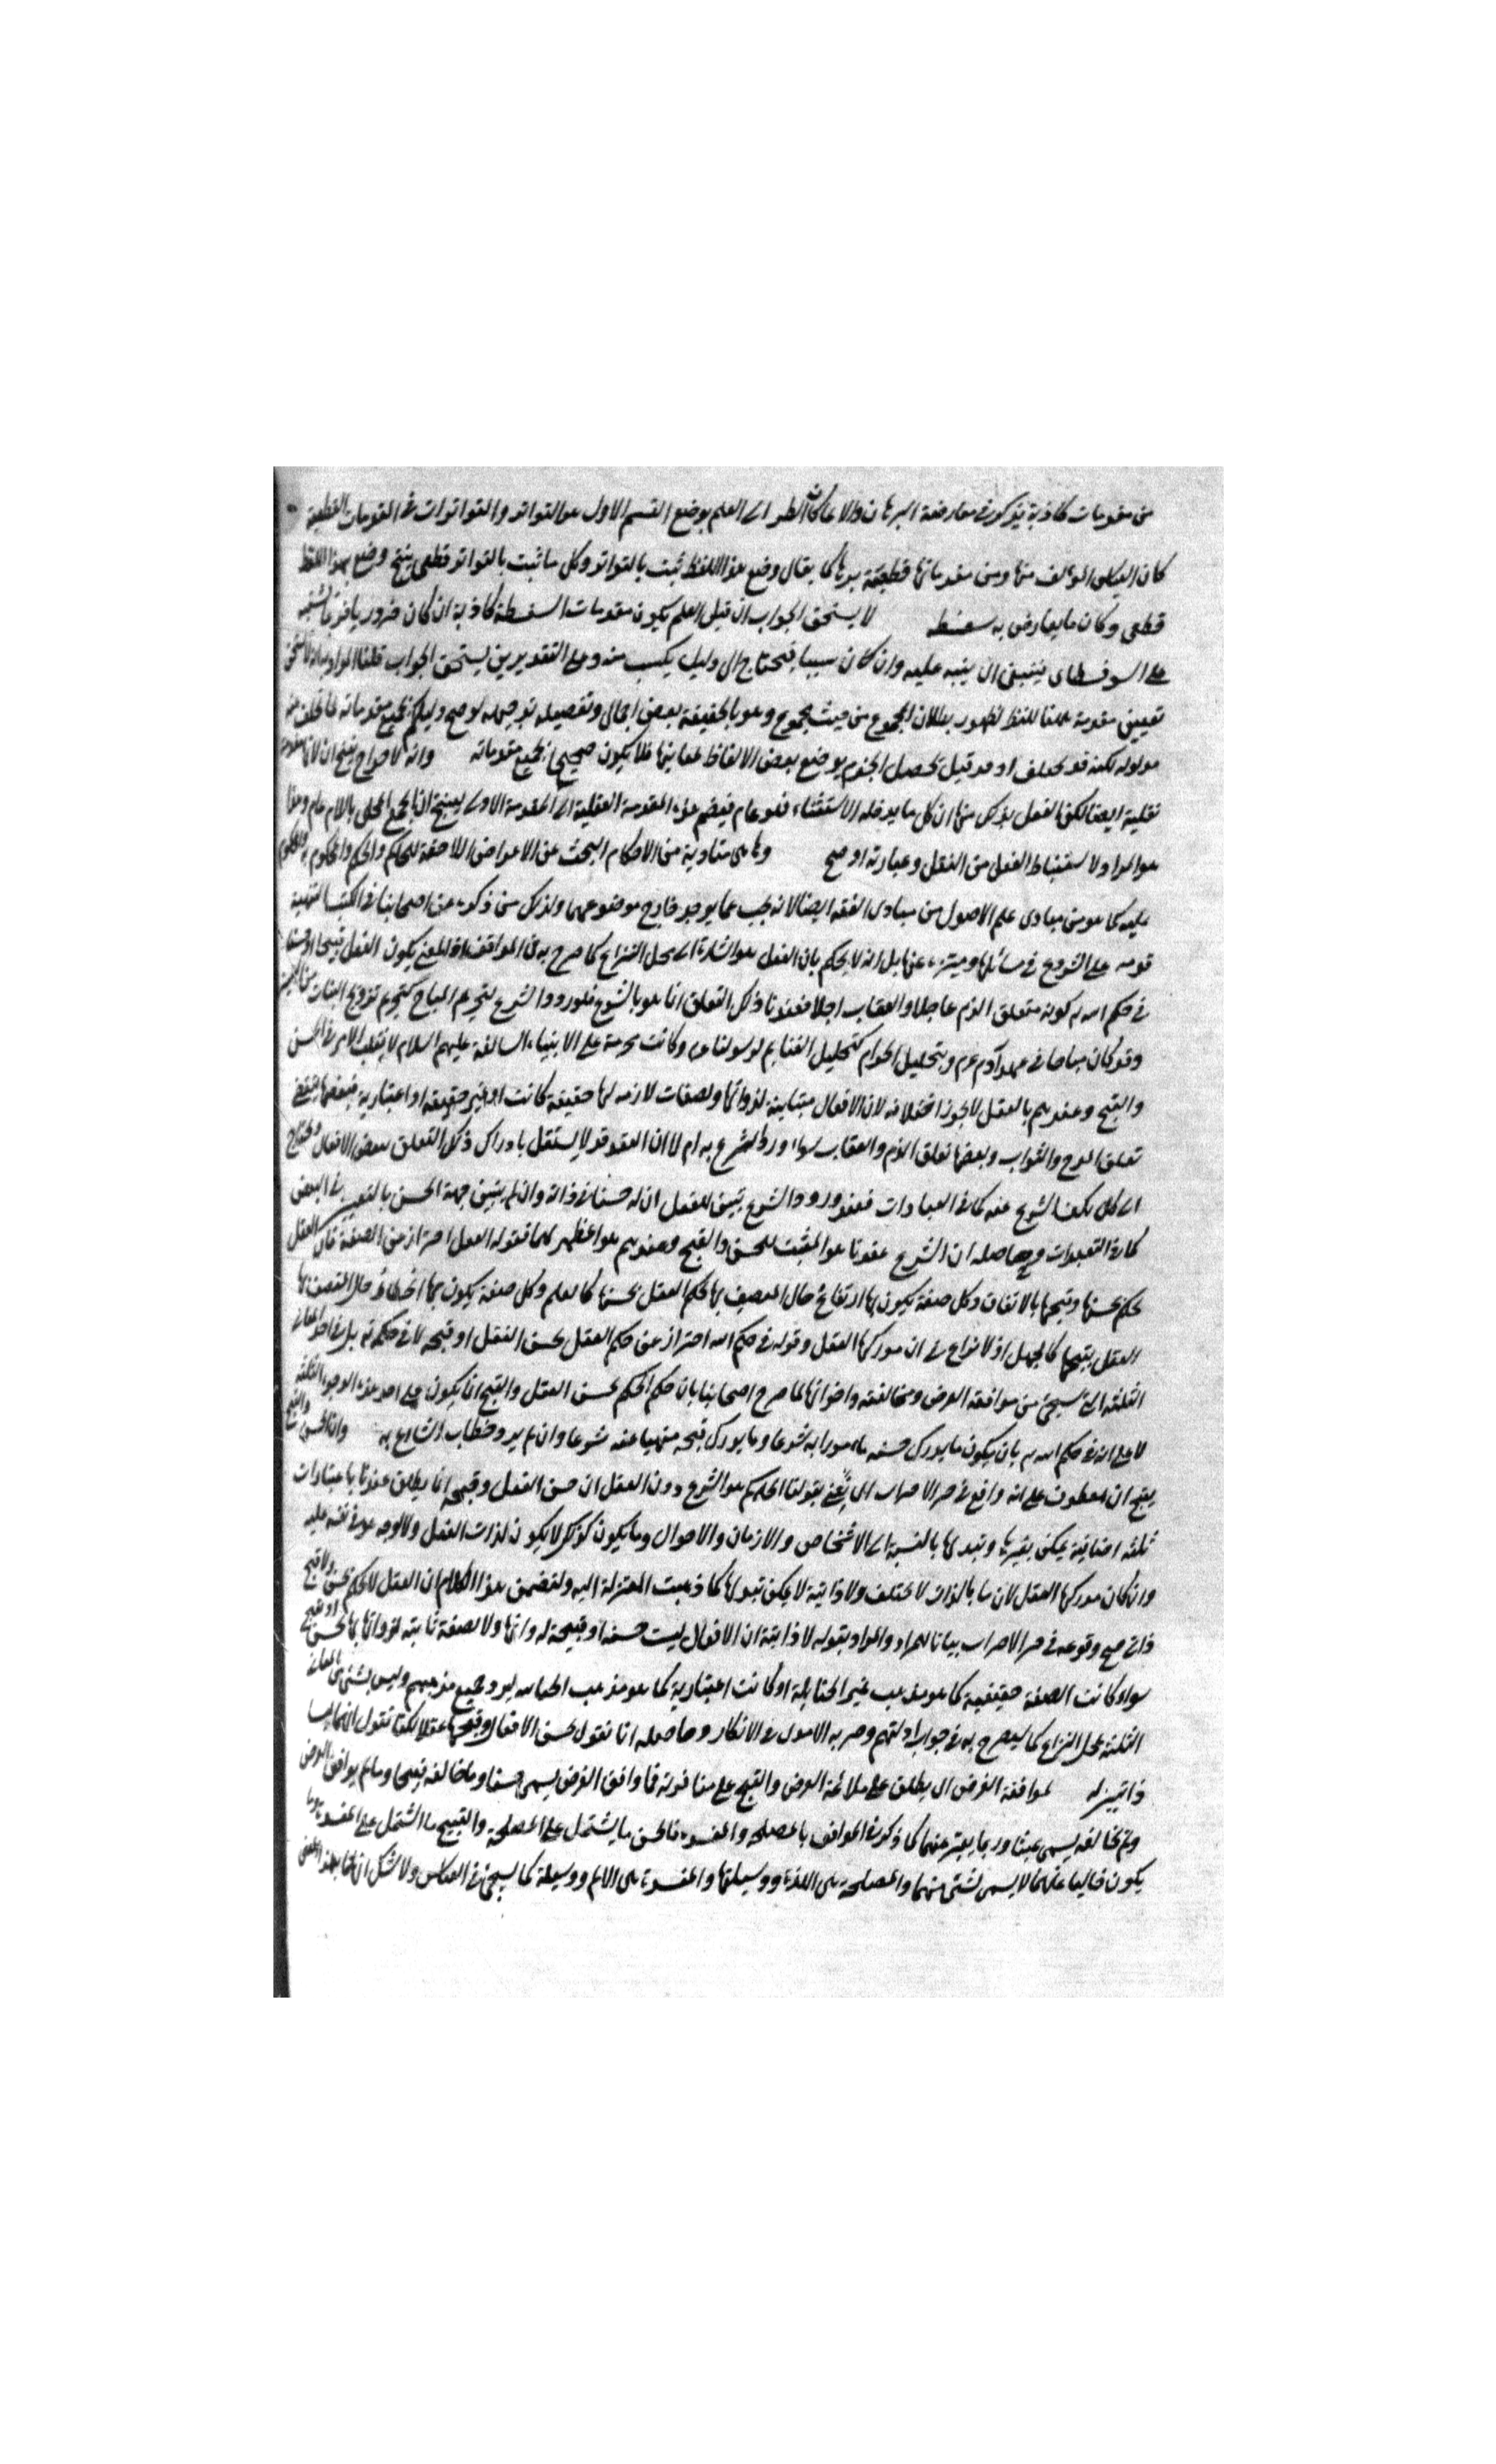 من مقدمات كاذبة يذكر في معارضة البرهان والا عاكان الطر اى العلم بوضع القسم الاول هو التواتر والتواترات في المقدمات القطعية
كان القياس المؤلف منها ومن مقدماتها قطعية برهانا كما يقال وضع هذا اللفظ ثبت بالتواتر وكل ما ثبت بالتواتر قطعى ينتج وضع هذا اللفظ
قطعى وكان ما يعارض به سفسطه لا يستحق الجواب ان قيل العلم بكون مقدمات السفسطة كاذبة ان كان ضروريا
على السوفسطاى ينبغى ان ينبه عليه وان كان كسبيا فيحتاج الى دليل يكسب منه وعلى التقديرين يستحق الجواب قلنا المراد
تعيين مقدمة للغلط لظهور بطلان المجموع من حيث المجموع وهو بالحقيقة نقض اجمالى وتفصيله توجيهه لو صح دليلكم بجميع مقدماته لما تخلف عنه
مدلوله لكنه قد تخلف او هو قبيل تحصل الجزم بوضع بعض الالفاظ لمعانيها فلا يكون صحيحا بجميع مقدماته وانه لاخراج
نقلية ايضا لكن العقل يدرك منها ان كل ما يدخله الاستثناء فهو عام فيضم هذه المقدمة العقلية الى المقدمة الاولى لينتج ان الجمع المحلى باللام عام وهذا
هو المراد لاستنباط العقل من النقل وعبارته اوضح وهاهى متادية من الاحكام البحث عن الاعراض اللاحقة للحاكم والحكم والمحكوم به والمحكوم
عليه كما هو من مبادى علم الاصول من مبادى الفقه ايضا لانه بحث عما يوجد خارج موضوعهما ولذلك من ذكره من اصحابنا في الكتب الفقهية
قدمه على الشروع في مسائلها وميزه عنها بل انه لا يحكم بان الفعل هو اشارة الى محل النزاع كما صرح به في المواقف اذ المعنى بكون الفعل قبيحا او حسنا
في حكم الله تع كونه متعلق الذم عاجلا والعقاب اجلا فعندنا ذلك التعلق انما هو بالشرع فلو ورد الشرع بتحريم المباح كتحريم تزويج البنات من البنين
وقد كان مباحا في عهد آدم عم وبتحليل الحرام كتحليل الغنايم لرسولنا عم وكانت محرمة على الانبياء السالفة عليهم السلام لانقلب الامر في الحسن
والقبح وعندهم بالعقل لا يجوز اختلافه لان الافعال متباينة لذواتها ولصفات لازمة لها حقيقة كانت او غير حقيقة او اعتبارية فبعضها يقتضى
تعلق المدح والثواب وبعضها تعلق الذم والعقاب سواء ورد الشرع به ام لا ان العقد قد لا يستقل بادراك ذلك التعلق ببعض الافعال ويحتاج
الى كل بكشف الشرع عنه كما في العبادات فعند ورود الشرع يتبين للعقل ان له حسنا في ذاته وان لم يتبين جهة الحسن بالتعيين في البعض
كما في التعبدات وحاصله ان الشرع عندنا هو المثبت للحسن والقبح وعندهم هو المظهر لهما فقوله الفعل احتراز من الصفة فان العقل
يحكم بحسنها وقبحها بالاتفاق وكل صفة يكون بها ارتفاع حال المتصف بها يحكم العقل بحسنها كالعلم وكل صفة يكون بها انحطاط حال المتصف بها
العقل بقبحها كالجهل اذ لا نزاع في ان مدركها العقل وقوله في حكم الله احتراز عن حكم العقل بحسن الفعل او قبحه لا في حكمه تع بل في احد المعانى
الثلثة التى سيجئ من موافقة الغرض ومخالفته واخواتها لما صرح اصحابنا بان حكم الحكم بحسن العقل والقبح انما يكون على احد هذه الوجوه الثلثة
لا على انه في حكم الله تع بان يكون ما يدرك حسنه مامورا به شرعا وما يدرك قبحه منهيا عنه شرعا وان لم يرد خطاب الشارع به وان الحسن والقبح
بفتح ان معطوف على انه واقع في حيز الاضراب اى نعنى بقولنا الحاكم هو الشرع دون العقل ان حسن الفعل وقبحه انما يطلق عندنا باعتبارات
ثلثة اضافية يمكن تغيرها وتبدلها بالنسبة الى الاشخاص والازمان والاحوال وما يكون كذلك لا يكون لذات الفعل ولا لوجه هو في نفسه عليه
وان كان مدركها العقل لان ما بالذات لا يختلف ولا ذاتية لا يمكن تبدلها كما ذهبت المعتزلة اليه ولتضمن هذا الكلام ان العقل لا يحكم بحسن ولا قبح
ذاتى صح وقوعه في حيز الاضراب بيانا للمراد والمراد بقوله لا ذاتية ان الافعال ليست حسنة او قبيحة لذواتها ولا لصفة ثابتة لذواتها بها يحسن او يقبح
سواء كانت الصفة حقيقية كما هو مذهب غير الجبائية او كانت اعتبارية كما هو مذهب الجبائيه ليرد جميع مذهبهم وليس بشئ من المعانى
الثلثة محل النزاع كما ليصرح به في جواب ادلتهم وصر به الامدى في الابكار وحاصله انا نقول بحسن الافعال وقبحها عقلا لكنا نقول انها ليسا
ذاتيين له لموافقة الغرض اى يطلق على ملائمة الغرض والقبح على منافرته فما وافق الغرض يسمى حسنا وما خالفه قبيحا وما لم يوافق الغرض
ولم يخالفه يسمى عبثا وربما يعبر عنهما كما ذكر في المواقف بالمصلحه والمفسده فالحسن ما يشتمل على المصلحة والقبيح ما اشتمل على المفسدة وما
يكون خاليا عنهما لا يسمى بشئ منهما والمصلحة هى اللذة ووسيلتها والمفسدة هى الالم ووسيلة كما سيجئ في القياس ولا شك ان بهذا المعنى